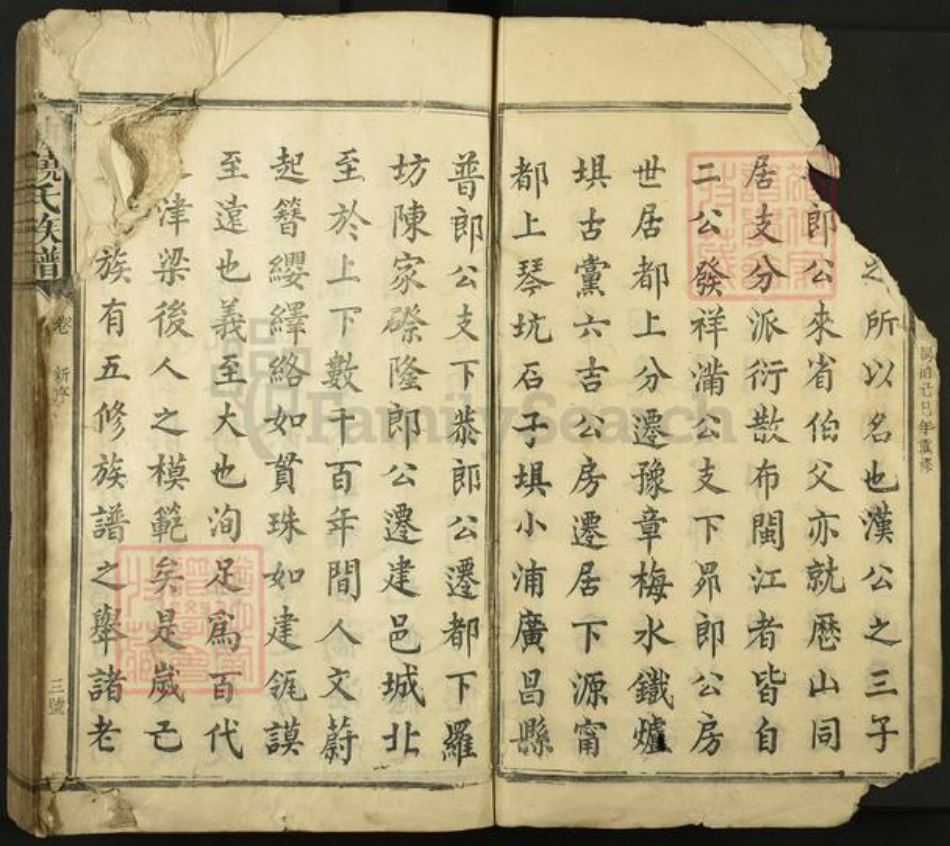 之所以名也漢公之三子
郎公來省伯父亦就歷山同
居支分派衍散布閩江者皆自
二公發祥滿公支下昴郎公房
世居都上分遷豫章梅水鐵爐
埧古黨六吉公房遷居下源甯
都上琴坑石子埧小浦廣昌縣
普郎公支下恭郎公遷都下羅
坊陳家磜隆郎公遷建邑城北
至於上下數千百年間人文蔚
起簪纓繹絡如貫珠如建瓴謨
至遠也義至大也洵足為百代
津梁後人之模範矣是歲己
族有五修族譜之舉諸老
饒氏族譜
卷
新序
三號
己巳年重修
FamilySearch